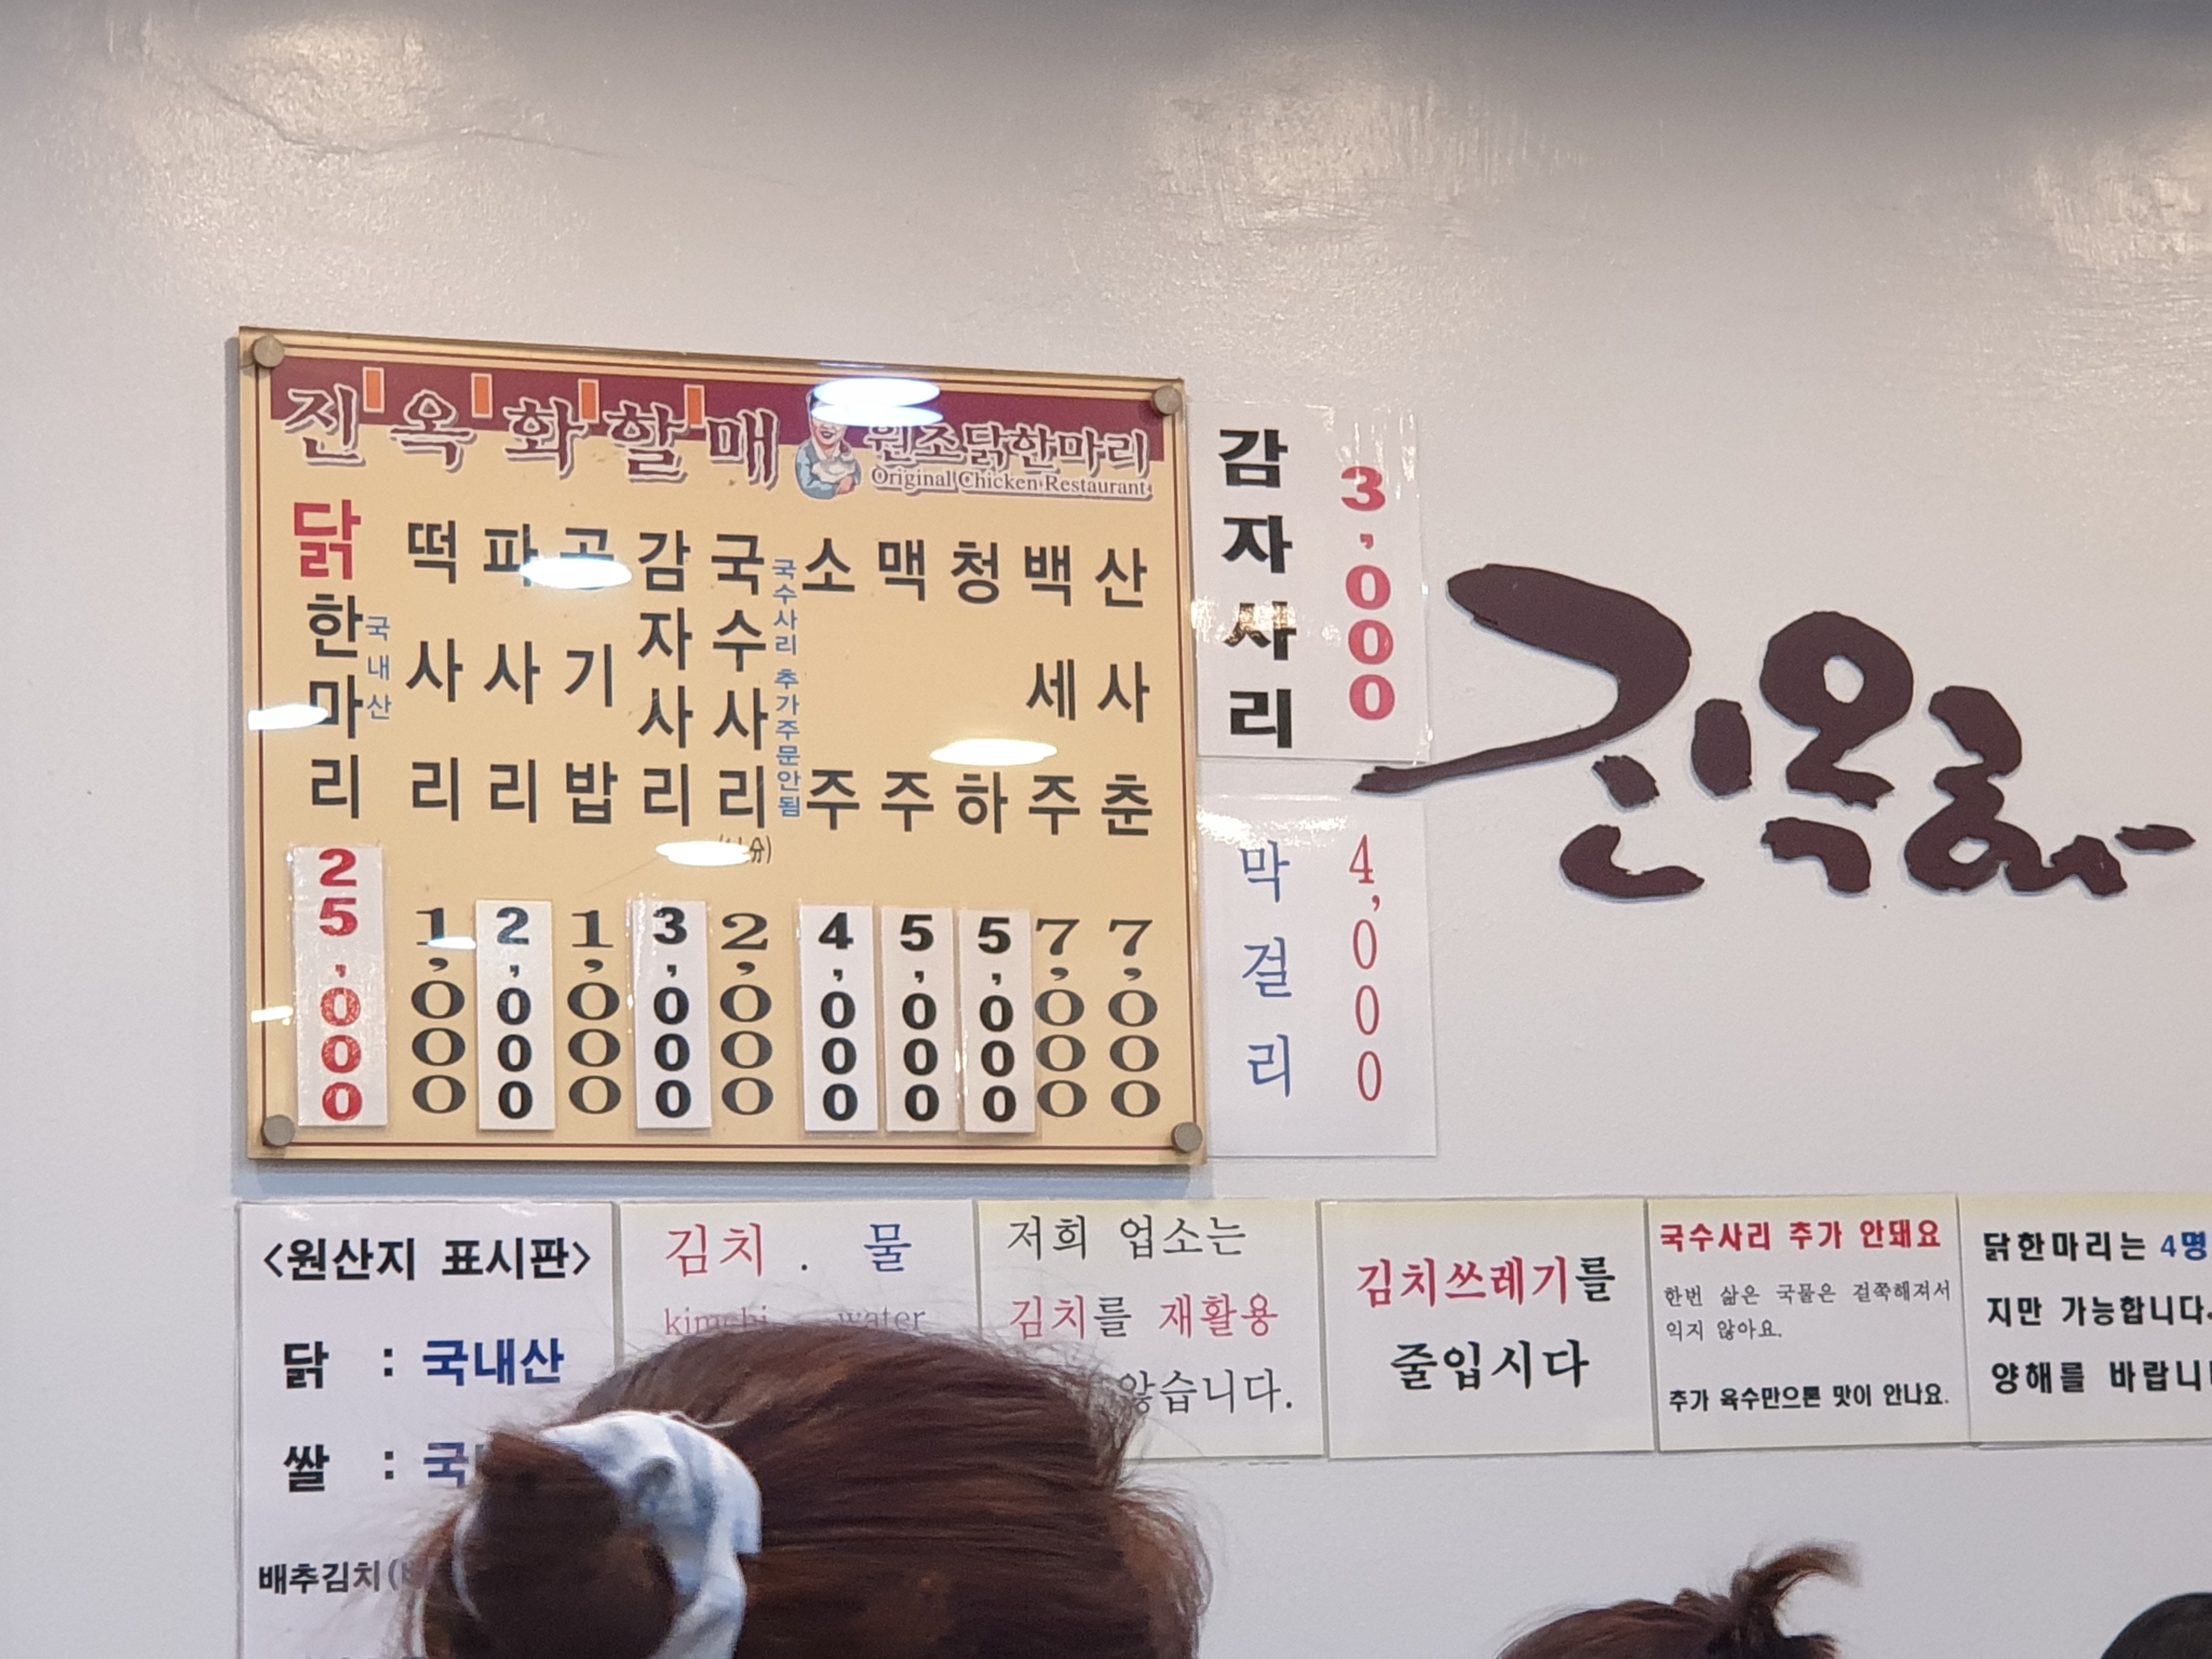 진옥화할매 원조닭한마리
Original Chicken Restaurant
닭한마리 국내산 25,000
떡사리 1,000
파사리 2,000
공기밥 1,000
감자사리 3,000
국수사리 2,000
국수사리 추가주문안됨
소주 4,000
맥주 5,000
청하 5,000
백세주 7,000
산사춘 7,000
감자사리 3,000
막걸리 4,000
진옥화
<원산지 표시판>
닭 : 국내산
쌀 :
배추김치
김치 . 물
kimchi water
저희 업소는
김치를 재활용
않습니다.
김치쓰레기를
줄입시다
국수사리 추가 안돼요
한번 삶은 국물은 걸쭉해져서
익지 않아요.
추가 육수만으론 맛이 안나요.
닭한마리는 4명
지만 가능합니다.
양해를